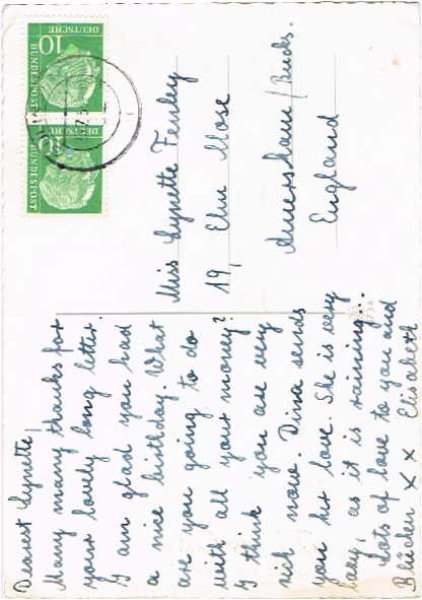 Dearest Lynette,
Many many thanks for
your lovely long letter.
I am glad you had
a nice birthday. What
are you going to do
with all your money?
I think you are very
rich now. Dina sends
you her love. She is very
busy, as it is raining...
Lots of love to you and
x x Elisabeth
Miss Lynette Fenley
19, Elm Close
Amersham/Bucks.
England
10
DEUTSCHE
BUNDESPOST
10
DEUTSCHE
BUNDESPOST